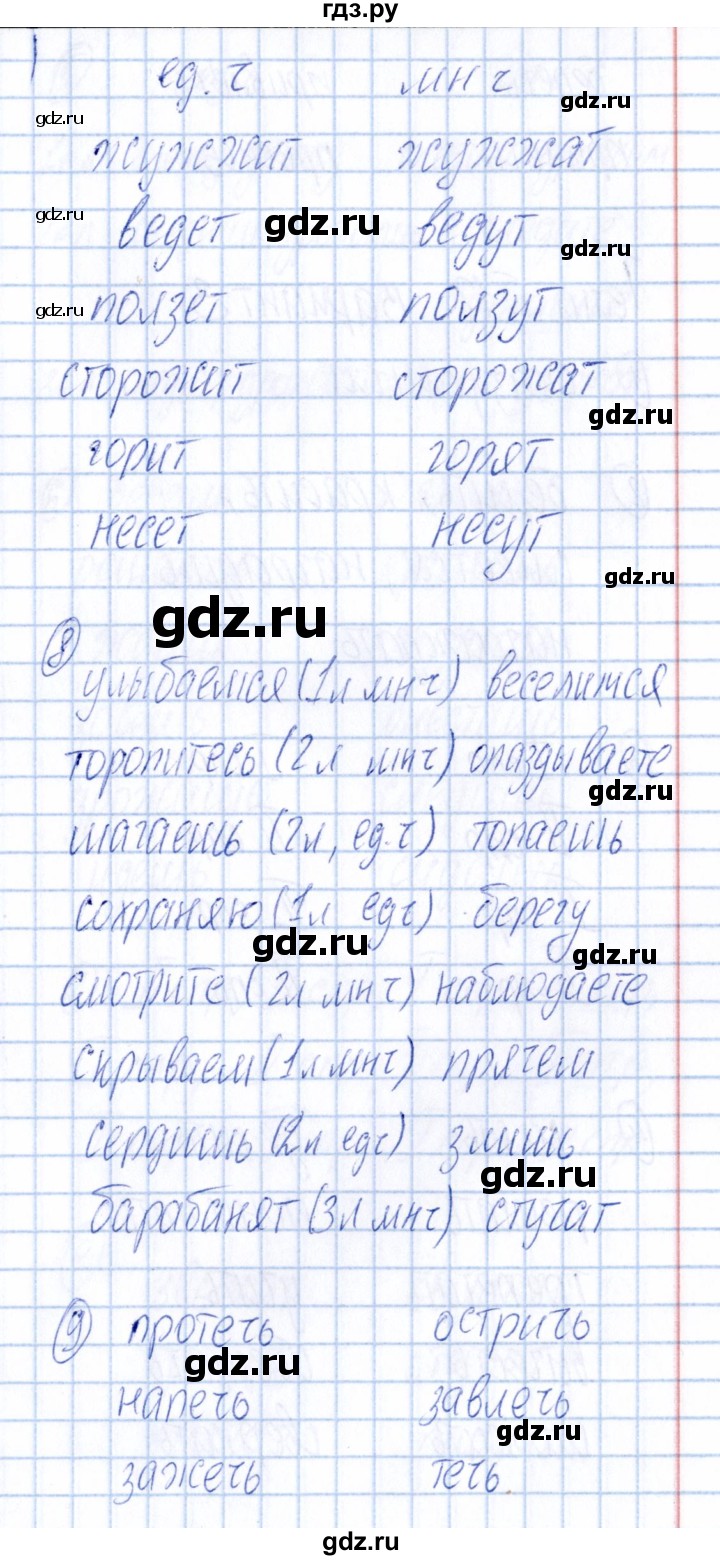 гдз.ру
ед. ч мн ч
gdz.ru
gdz.ru
жужжит жужжат
gdz.ru
ведет gdz.ru ведут
gdz.ru
gdz.ru
ползет ползут
сторожит сторожат
gdz.ru
горит горят
несет несут
gdz.ru
gdz.ru
8
улыбаемся (1л мн ч) веселимся
торопитесь (2л мн ч) опаздываете
gdz.ru
шагаешь (2л, ед.ч) топаешь
сохраняю (1л ед ч) берегу
gdz.ru gdz.ru
смотрите (2л мн ч) наблюдаете
скрываем (1л мн ч) прячем
сердишь (2л ед ч) злишь
gdz.ru
барабанят (3л мн ч) стучат
9 протечь остричь
gdz.ru
напечь завлечь
gdz.ru
зажечь течь
gdz.ru